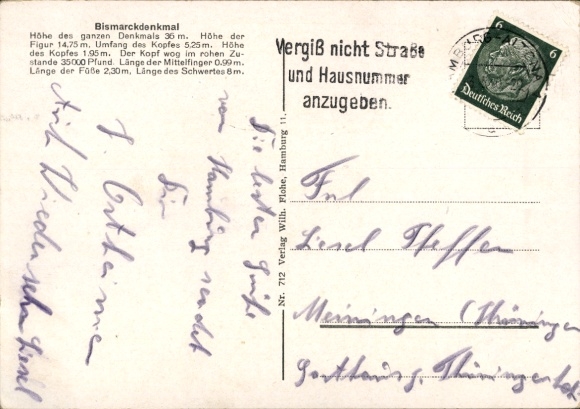 Bismarckdenkmal
Höhe des ganzen Denkmals 36 m. Höhe der
Figur 14.75 m. Umfang des Kopfes 5.25 m. Höhe
des Kopfes 1.95 m. Der Kopf wog im rohen Zu-
stande 35000 Pfund. Länge der Mittelfinger 0.99 m.
Länge der Füße 2,30 m, Länge des Schwertes 8 m.
Die besten Grüße
von Hamburg sendet
Dir
Auf Wiedersehen Liesel
Nr. 712 Verlag Wilh. Flohe, Hamburg 11.
Vergiß nicht Straße
und Hausnummer
anzugeben.
6 6
Deutsches Reich
Frl
Liesel Pfeffer
Meiningen (Thüringen